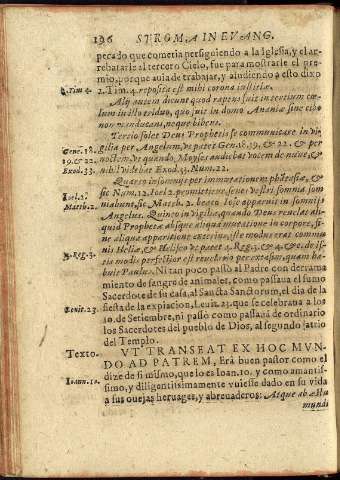 196 STROMA IN EVANG.
pecado que cometia persiguiendo a la Iglesia, y el ar-
rebatarle al tercero Cielo, fue para mostrarle el pre-
mio, porque auia de trabajar, y aludiendo a esto dixo
2. Tim. 4. 2. Tim. 4. reposita est mihi corona iustitiæ.
Alij autem dicunt quod raptus fuit in tertium cæ-
lum in isto triduo, quo fuit in domo Ananiæ sine cibo
non manducans, neque bibens.
Tertio solet Deus Prophetis se communicare in vi-
Gene. 18. gilia per Angelum, vt patet Gen. 18. 19. & 22. & per
19. & 22. noctem, vt quando Moyses audibat vocem de nube, &
Exod. 33. nihil videbat Exod. 33. Num. 12.
Quarto in somnijs per immutationem phātasiæ, &
Ioel. 2. sic Num. 12. Ioel. 2. promittit senes vestri somnia som
Matth. 2. niabunt, sic Matth. 2. beato Iose apparuit in somnis
Angelus. Quinto in vigilia, quando Deus reuelat ali-
quid Prophetæ absque aliqua mutatione in corpore, si-
ne aliqua apparitione exteriori, iste modus erat commu-
nis Heliæ, & Heliseo vt patet 4. Reg. 3. & 4. & de is-
4. Reg. 3. tis modis perfectior est reuelatio per extasim, quam ha-
buit Paulus. Ni tan poco passò al Padre con derrama
miento de sangre de animales, como passaua el sumo
Sacerdote de su casa, al Sancta Sanctorum, el dia de la
Leuit. 23. fiesta de la expiacion, Leuit. 23. que se celebraua a los
10. de Setiembre, ni passò como passauā de ordinario
los Sacerdotes del pueblo de Dios, al segundo atrio
del Templo.
Texto. VT TRANSEAT EX HOC MVN-
DO AD PATREM, Era buen pastor como el
Ioann. 10. dize de si mismo, que lo es Ioan. 10. y como amantis-
simo, y diligentissimamente vuiesse dado en su vida
a sus ouejas heruages, y abreuaderos: Atque ab
mundi